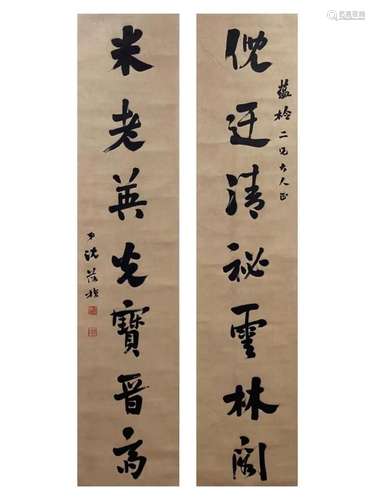 倪迂清祕雲林閣
二兄大人正
米老英光寶晉齋
弟沈葆楨